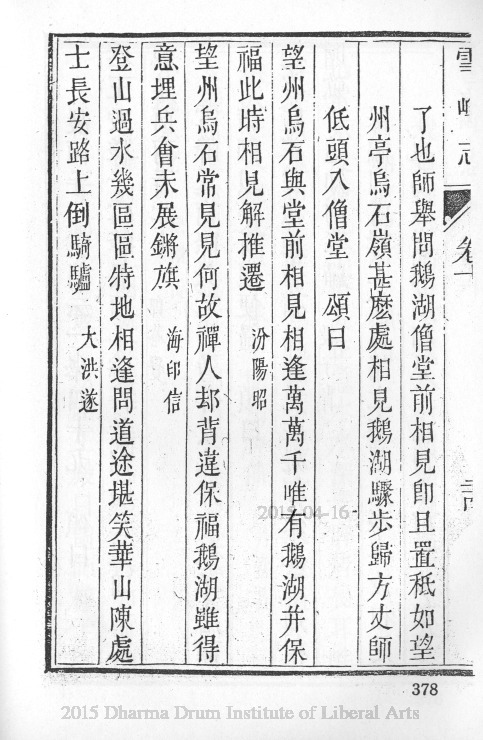 雪峰志
卷十
了也師舉問鵝湖僧堂前相見即且置秪如望
州亭烏石嶺甚麼處相見鵝湖驟步歸方丈師
低頭入僧堂　頌曰
望州烏石與堂前相見相逢萬萬千唯有鵝湖并保
福此時相見解推遷　汾陽昭
望州烏石常見見何故禪人却背違保福鵝湖雖得
意埋兵會未展鏘旗　海印信
登山過水幾區區特地相逢問道途堪笑華山陳處
士長安路上倒騎驢　大洪遂
2015-04-16
378
2015 Dharma Drum Institute of Liberal Arts